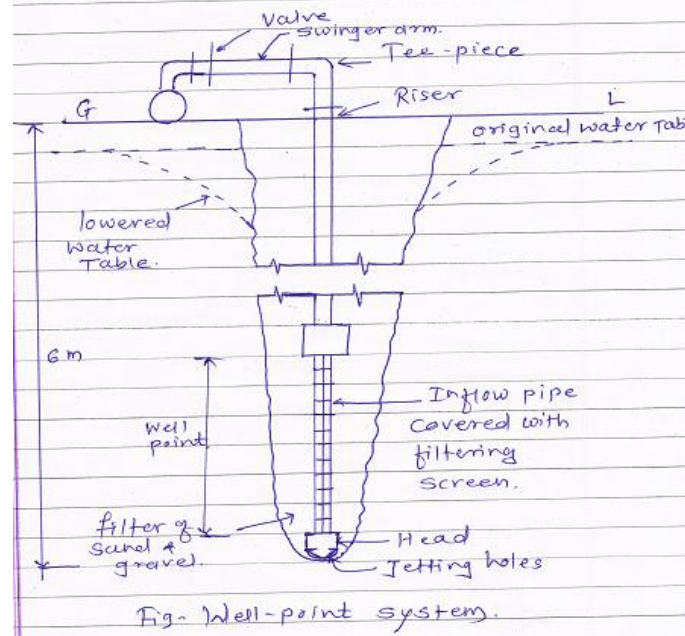 Valve
swinger arm.
Tee-piece
Riser
G
L
original water Tab
lowered
water
Table.
6m
Well
point
Inflow pipe
covered with
filtering
screen.
filter of
sand &
gravel.
Head
Jetting holes
Fig- Well-point system.